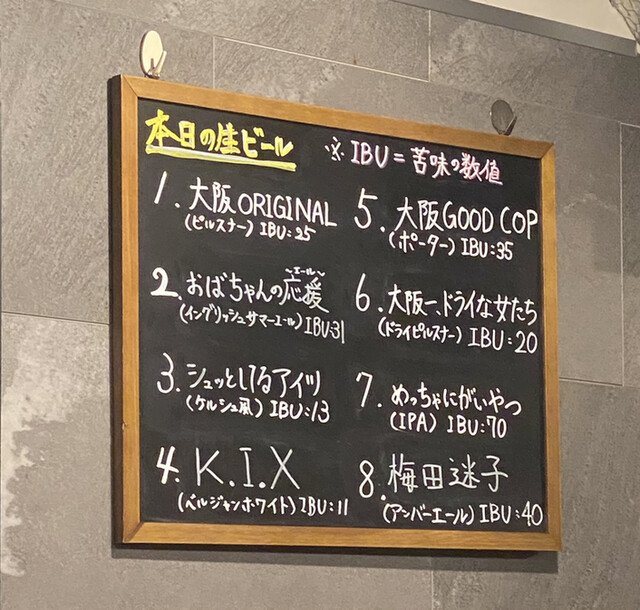 本日の生ビール
※ IBU = 苦味の数値
1. 大阪 ORIGINAL
(ピルスナー) IBU:25
2. おばちゃんの応援
～エール～
(イングリッシュサマーエール) IBU:31
3. シュッとしてるアイツ
(ケルシュ風) IBU:13
4. K.I.X
(ベルジャンホワイト) IBU:11
5. 大阪 GOOD COP
(ポーター) IBU:35
6. 大阪一、ドライな女たち
(ドライピルスナー) IBU:20
7. めっちゃにがいやつ
(IPA) IBU:70
8. 梅田迷子
(アンバーエール) IBU:40